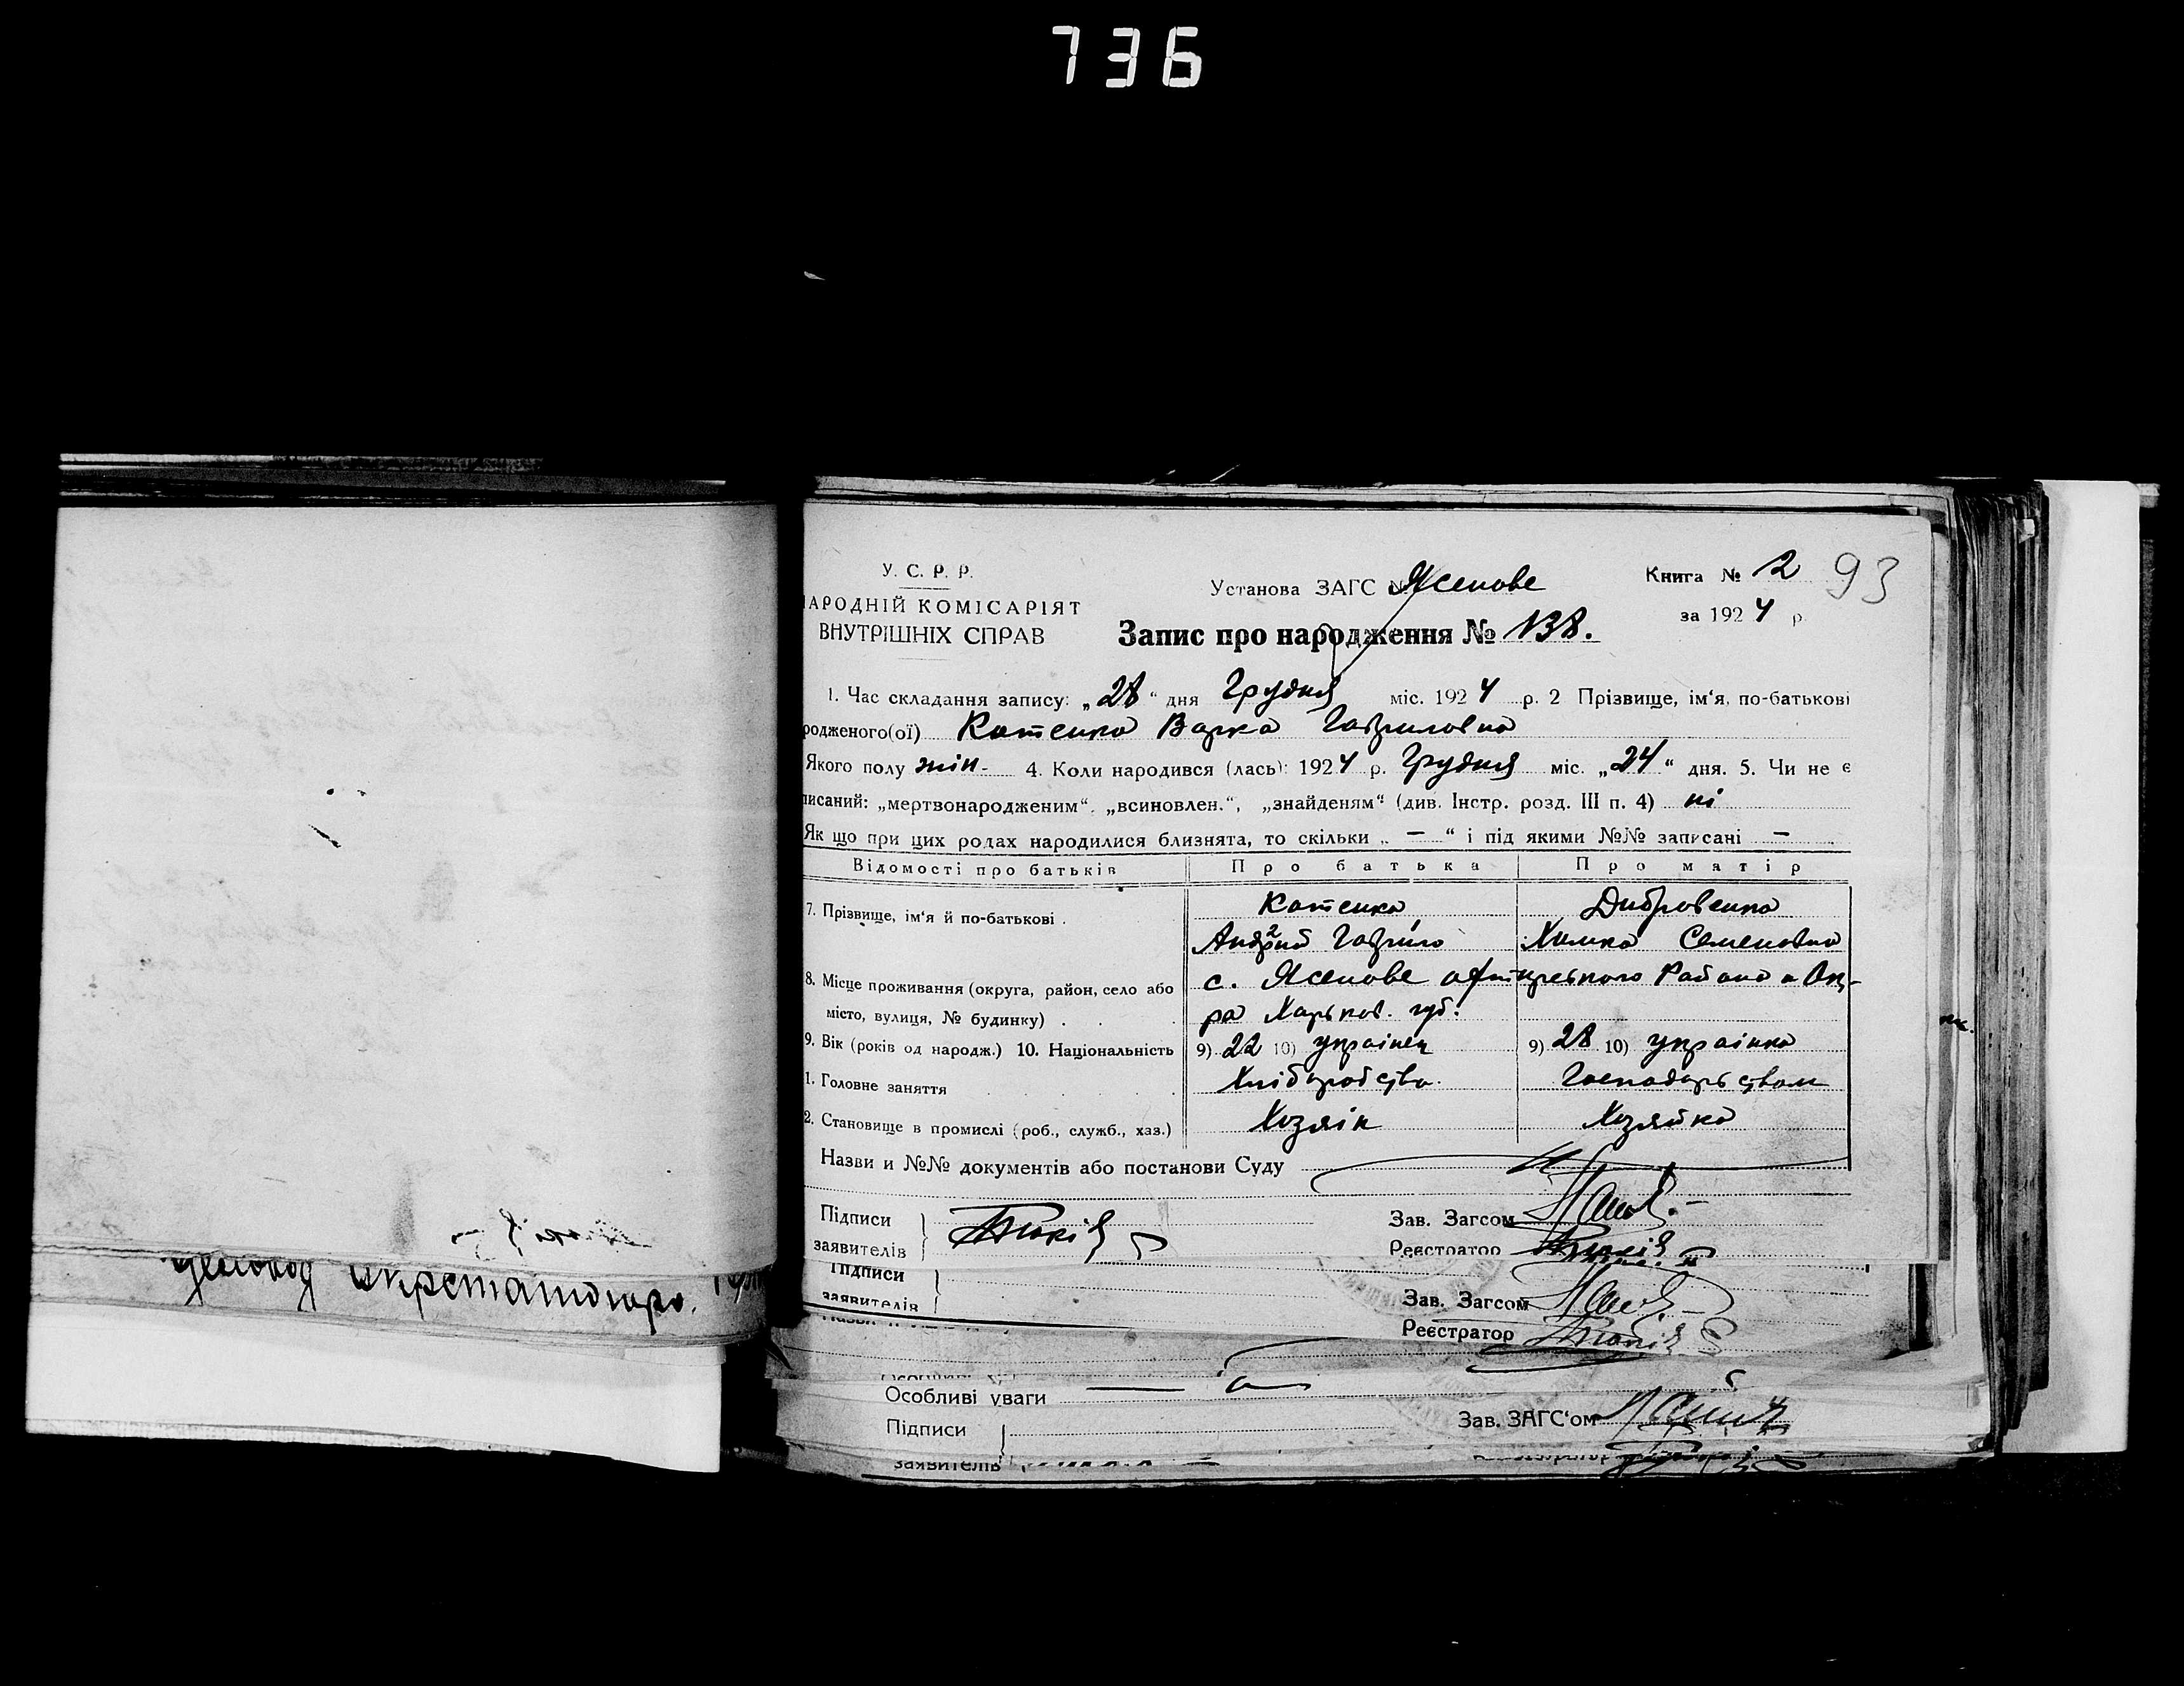 736
У. С. Р. Р.
АРОДНІЙ КОМІСАРІЯТ
ВНУТРІШНІХ СПРАВ
Установа ЗАГС Ясенове
Книга № 2
93
за 1924 р
Запис про народження № 138.
1. Час складання запису: „28“ дня Грудня міс. 1924 р. 2 Прізвище, ім‘я, по-батькові
родженого(ої) Котенко Варка Гавриловна
Якого полу жін- 4. Коли народився (лась): 1924 р. Грудня міс. „24“ дня. 5. Чи не є
писаний: „мертвонародженим“, „всиновлен.“, „знайденям“ (див. Інстр. розд. III п. 4) ні
Як що при цих родах народилися близнята, то скільки „ — “ і під якими №№ записані —
Відомості про батьків Про батька Про матір
7. Прізвище, ім‘я й по-батькові . Котенко Дибровенко
Гаврило Семеновна
8. Місце проживання (округа, район, село або с. Ясенове
місто, вулиця, № будинку) . . . ра Харьков. губ.
9. Вік (років од народж.) 10. Національність 9) 22 10) украінец 9) 28 10) украінка
1. Головне заняття Хліборобство. Господарьством
2. Становище в промислі (роб., служб., хаз.) Хозяін Хозяйка
Назви и №№ документів або постанови Суду
Підписи
заявителів
Зав. Загсом
Реєстратор
Підписи
заявителів
Зав. Загсом
Реєстратор
Особливі уваги
Підписи
Зав. ЗАГС‘ом
заявителів